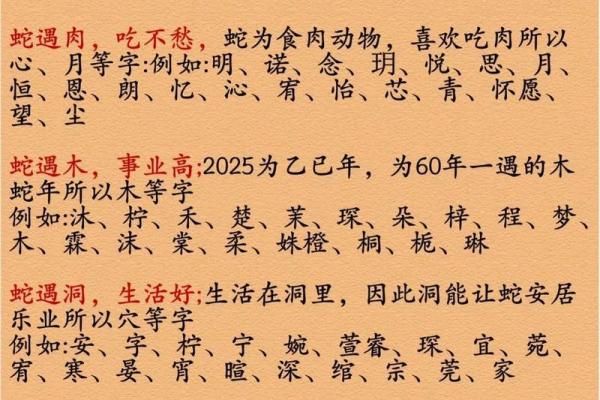 蛇遇肉，吃不愁，蛇为食肉动物，喜欢吃肉所以
心、月等字:例如:明、诺、念、玥、悦、思、月、
恒、恩、朗、忆、沁、宥、怡、芯、青、怀愿、
望、尘
蛇遇木，事业高;2025为乙巳年，为60年一遇的木
蛇年所以木等字
例如:沐、柠、禾、楚、茉、琛、朵、梓、程、梦、
木、霖、沫、棠、柔、姝橙、桐、栀、琳
蛇遇洞，生活好;生活在洞里，因此洞能让蛇安居
乐业所以穴等字
例如:安、字、柠、宁、婉、萱睿、琛、宜、菀、
宥、寒、晏、宵、暄、深、绾、宗、莞、家